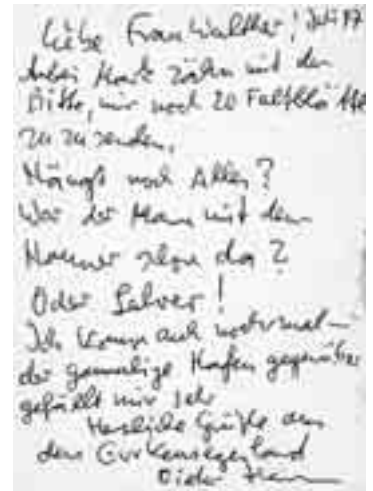 Liebe Frau Walther! Juli 97
Anbei Karte Zähn mit der
Bitte, mir noch 20 Faltblätter
zu zu senden.
Hängt noch Alles?
War der Mann mit dem
Hammer schon da?
Oder Salver!
Ich komme auch nochmal –
der gammelige Hafen gegenüber
gefällt mir sehr
Herzliche Grüße aus
dem Gurkensegenland
Dieter